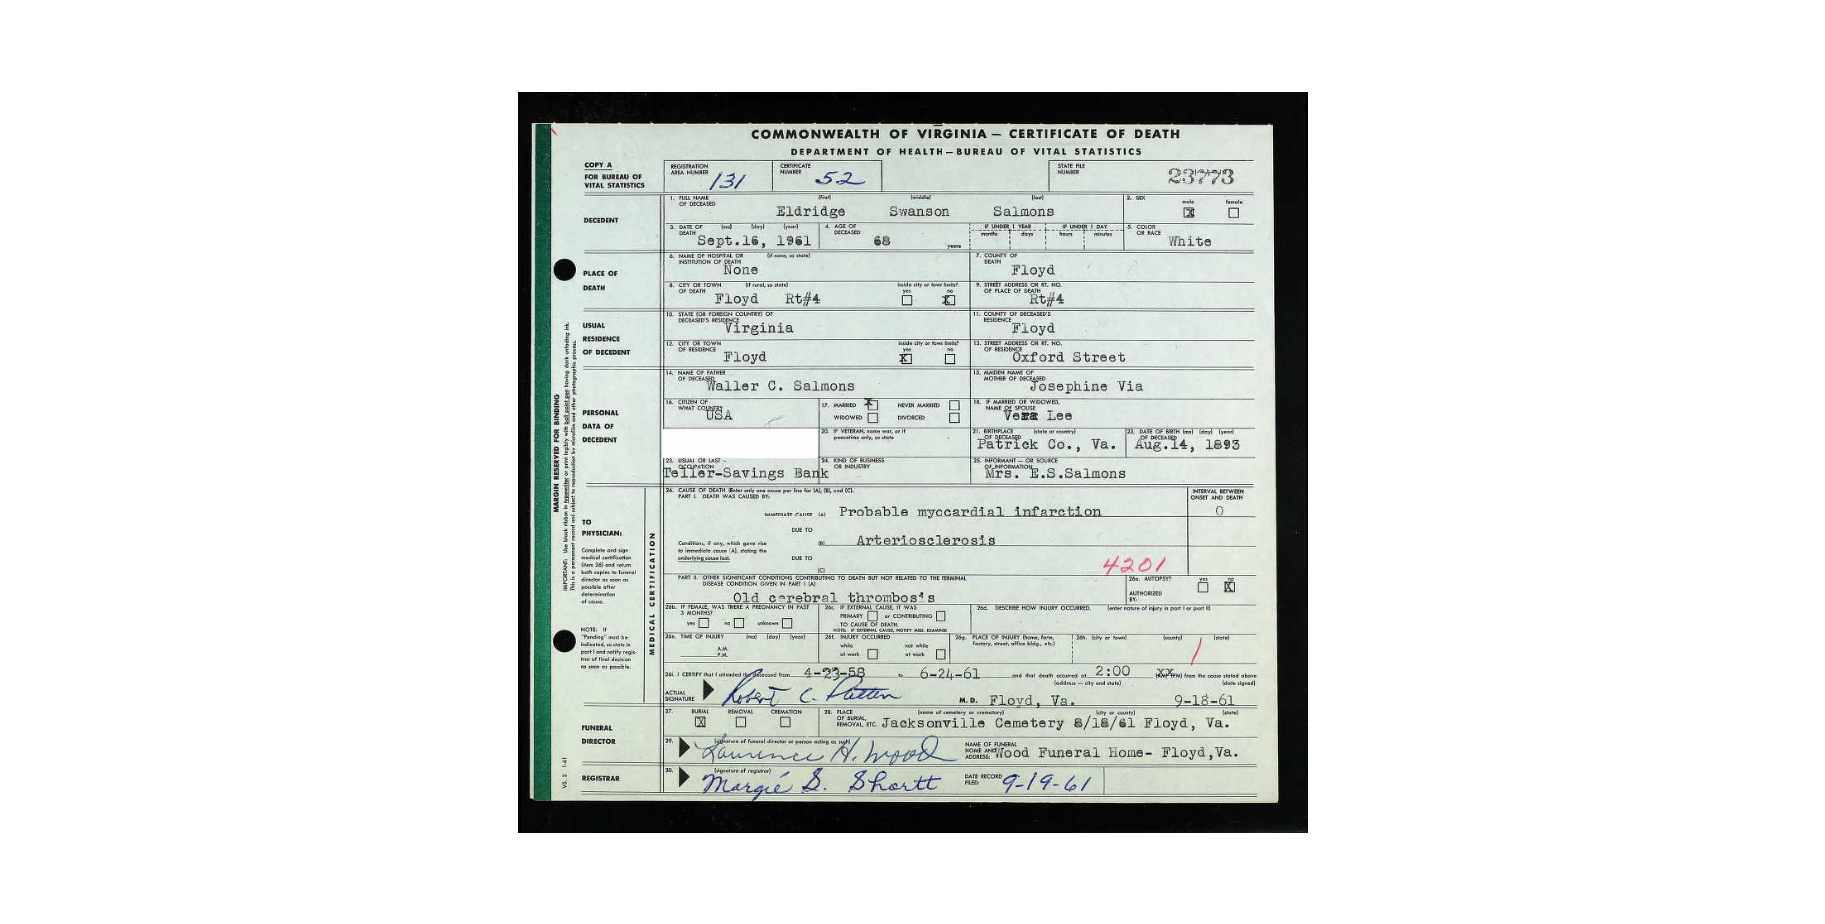 COMMONWEALTH OF VIRGINIA — CERTIFICATE OF DEATH
DEPARTMENT OF HEALTH—BUREAU OF VITAL STATISTICS
COPY A
FOR BUREAU OF
VITAL STATISTICS
REGISTRATION AREA NUMBER 131
CERTIFICATE NUMBER 52
STATE FILE NUMBER 23773
DECEDENT
1. FULL NAME OF DECEASED (first) (middle) (last)
Eldridge Swanson Salmons
2. SEX male X female
3. DATE OF DEATH (mo) (day) (year)
Sept.16, 1961
4. AGE OF DECEASED 68 years
IF UNDER 1 YEAR months days
IF UNDER 1 DAY hours minutes
5. COLOR OR RACE White
PLACE OF
DEATH
6. NAME OF HOSPITAL OR INSTITUTION OF DEATH (if none, so state)
None
7. COUNTY OF DEATH
Floyd
8. CITY OR TOWN OF DEATH (if rural, so state)
Floyd Rt#4
inside city or town limits? yes no X
9. STREET ADDRESS OR RT. NO. OF PLACE OF DEATH
Rt#4
USUAL
RESIDENCE
OF DECEDENT
10. STATE (OR FOREIGN COUNTRY) OF DECEASED'S RESIDENCE
Virginia
11. COUNTY OF DECEASED'S RESIDENCE
Floyd
12. CITY OR TOWN OF RESIDENCE
Floyd
inside city or town limits? yes X no
13. STREET ADDRESS OR RT. NO. OF RESIDENCE
Oxford Street
PERSONAL
DATA OF
DECEDENT
14. NAME OF FATHER OF DECEASED
Waller C. Salmons
15. MAIDEN NAME OF MOTHER OF DECEASED
Josephine Via
16. CITIZEN OF WHAT COUNTRY
USA
17. MARRIED X NEVER MARRIED
WIDOWED DIVORCED
18. IF MARRIED OR WIDOWED, NAME OF SPOUSE
Lee
20. IF VETERAN, name war, or if peacetime only, so state
21. BIRTHPLACE OF DECEASED (state or country)
Patrick Co., Va.
22. DATE OF BIRTH OF DECEASED (mo) (day) (year)
Aug.14, 1893
23. USUAL OR LAST OCCUPATION
Teller-Savings Bank
24. KIND OF BUSINESS OR INDUSTRY
25. INFORMANT — OR SOURCE OF INFORMATION
Mrs. E.S.Salmons
MARGIN RESERVED FOR BINDING
TO
PHYSICIAN:
Complete and sign
medical certification
(item 26) and return
both copies to funeral
director as soon as
possible after
determination
of cause.
NOTE: If
"Pending" must be
indicated, so state in
part I and notify regis-
trar of final decision
as soon as possible.
MEDICAL CERTIFICATION
26. CAUSE OF DEATH (Enter only one cause per line for (A), (B), and (C).
PART I. DEATH WAS CAUSED BY:
INTERVAL BETWEEN ONSET AND DEATH
IMMEDIATE CAUSE (A) Probable myocardial infarction 0
DUE TO
Conditions, if any, which gave rise to immediate cause (A), stating the underlying cause last.
(B) Arteriosclerosis
DUE TO
(C)
4201
PART II. OTHER SIGNIFICANT CONDITIONS CONTRIBUTING TO DEATH BUT NOT RELATED TO THE TERMINAL DISEASE CONDITION GIVEN IN PART I (A)
Old cerebral thrombosis
26a. AUTOPSY? yes no X
AUTHORIZED BY:
26b. IF FEMALE, WAS THERE A PREGNANCY IN PAST 3 MONTHS?
yes no unknown
26c. IF EXTERNAL CAUSE, IT WAS
PRIMARY or CONTRIBUTING
TO CAUSE OF DEATH.
NOTE: IF EXTERNAL CAUSE, NOTIFY MED. EXAMINER
26d. DESCRIBE HOW INJURY OCCURRED. (enter nature of injury in part I or part II)
26e. TIME OF INJURY (mo) (day) (year)
A.M.
P.M.
26f. INJURY OCCURRED
while at work not while at work
26g. PLACE OF INJURY (home, farm, factory, street, office bldg., etc.)
26h. (city or town) (county) (state)
26i. I CERTIFY that I attended the deceased from 4-23-58 to 6-24-61 and that death occurred at 2:00 from the cause stated above
(address — city and state) (date signed)
ACTUAL SIGNATURE Robert C. Patten M.D. Floyd, Va. 9-18-61
FUNERAL
DIRECTOR
27. BURIAL X REMOVAL CREMATION
28. PLACE OF BURIAL, REMOVAL, ETC. (name of cemetery or crematory) (city or county) (state)
Jacksonville Cemetery 8/18/61 Floyd, Va.
29. (signature of funeral director or person acting as such)
Laurence H. Wood
NAME OF FUNERAL HOME AND ADDRESS: Wood Funeral Home- Floyd,Va.
REGISTRAR
30. (signature of registrar)
Margie S. Shortt
DATE RECORD FILED: 9-19-61
VS. 2 1-61